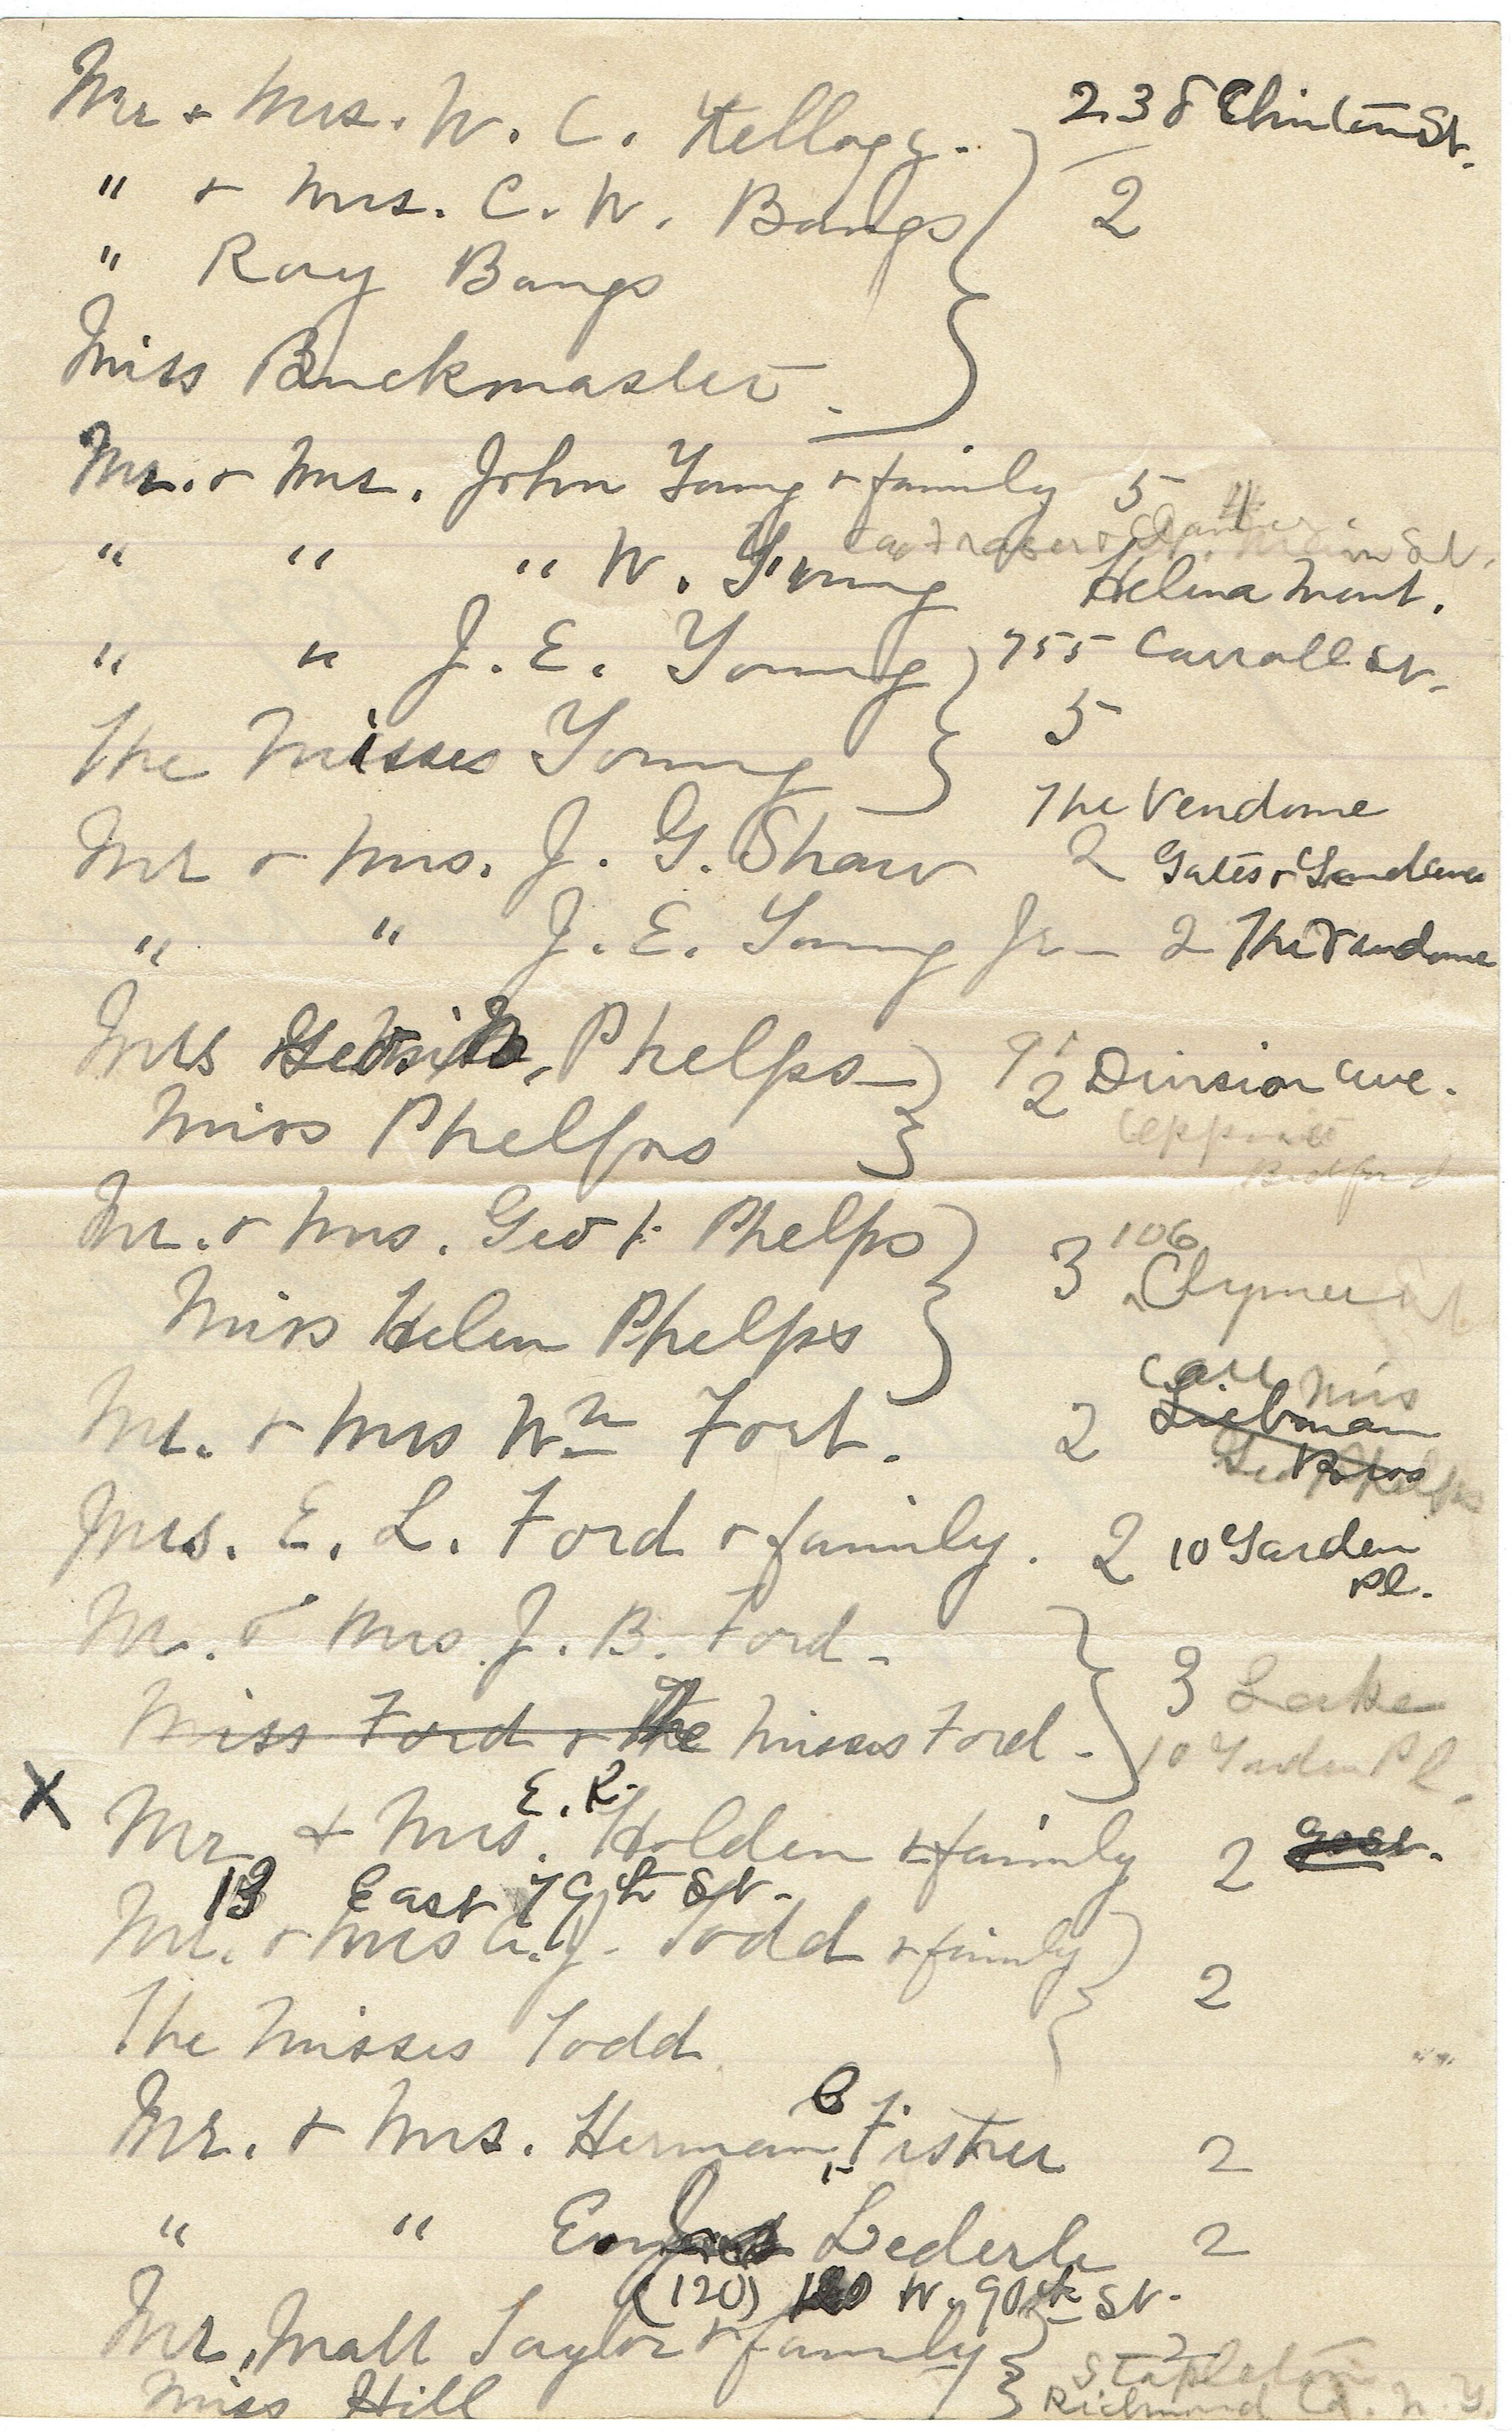 Mr + Mrs. W. C. Kellogg. 238 Clinton St.
" + Mrs. C. W. Bangs 2
" Roy Bangs
Miss Buckmaster.
Mr. + Mrs. John Young + family 5
" " " W. Young Helena Mont.
" " J. E. Young 755 Carroll St.
The Misses Young 5
The Vendome
Mr + Mrs. J. G. Shaw 2 Gates +
" " J. E. Young Jr - 2 The Vendome
Mrs Phelps - 91 Division ave.
2
Miss Phelps opposite
Bedford
Mr. + Mrs. Geo F. Phelps 3 106
Miss Helen Phelps Clymer St
care Mrs
Mr. + Mrs Wm Fort. 2 Liebman
Bros
Geo Phelps
Mrs. E. L. Ford + family. 2 10 Garden
Pl.
Mr. + Mrs J. B. Ford - 3 Lake
Miss Ford + The Misses Ford - 10 Garden Pl.
E. R.
X Mr + Mrs. Holden + family 2
13 East 79th St.
Mr. + Mrs A. J. Todd + family 2
The Misses Todd
C
Mr. + Mrs. Herman Fisher 2
" " Lederle 2
(120) W. 90th St.
Mr. Matt Taylor + family 2
Stapleton
Miss Hill Richmond Co. N. Y.